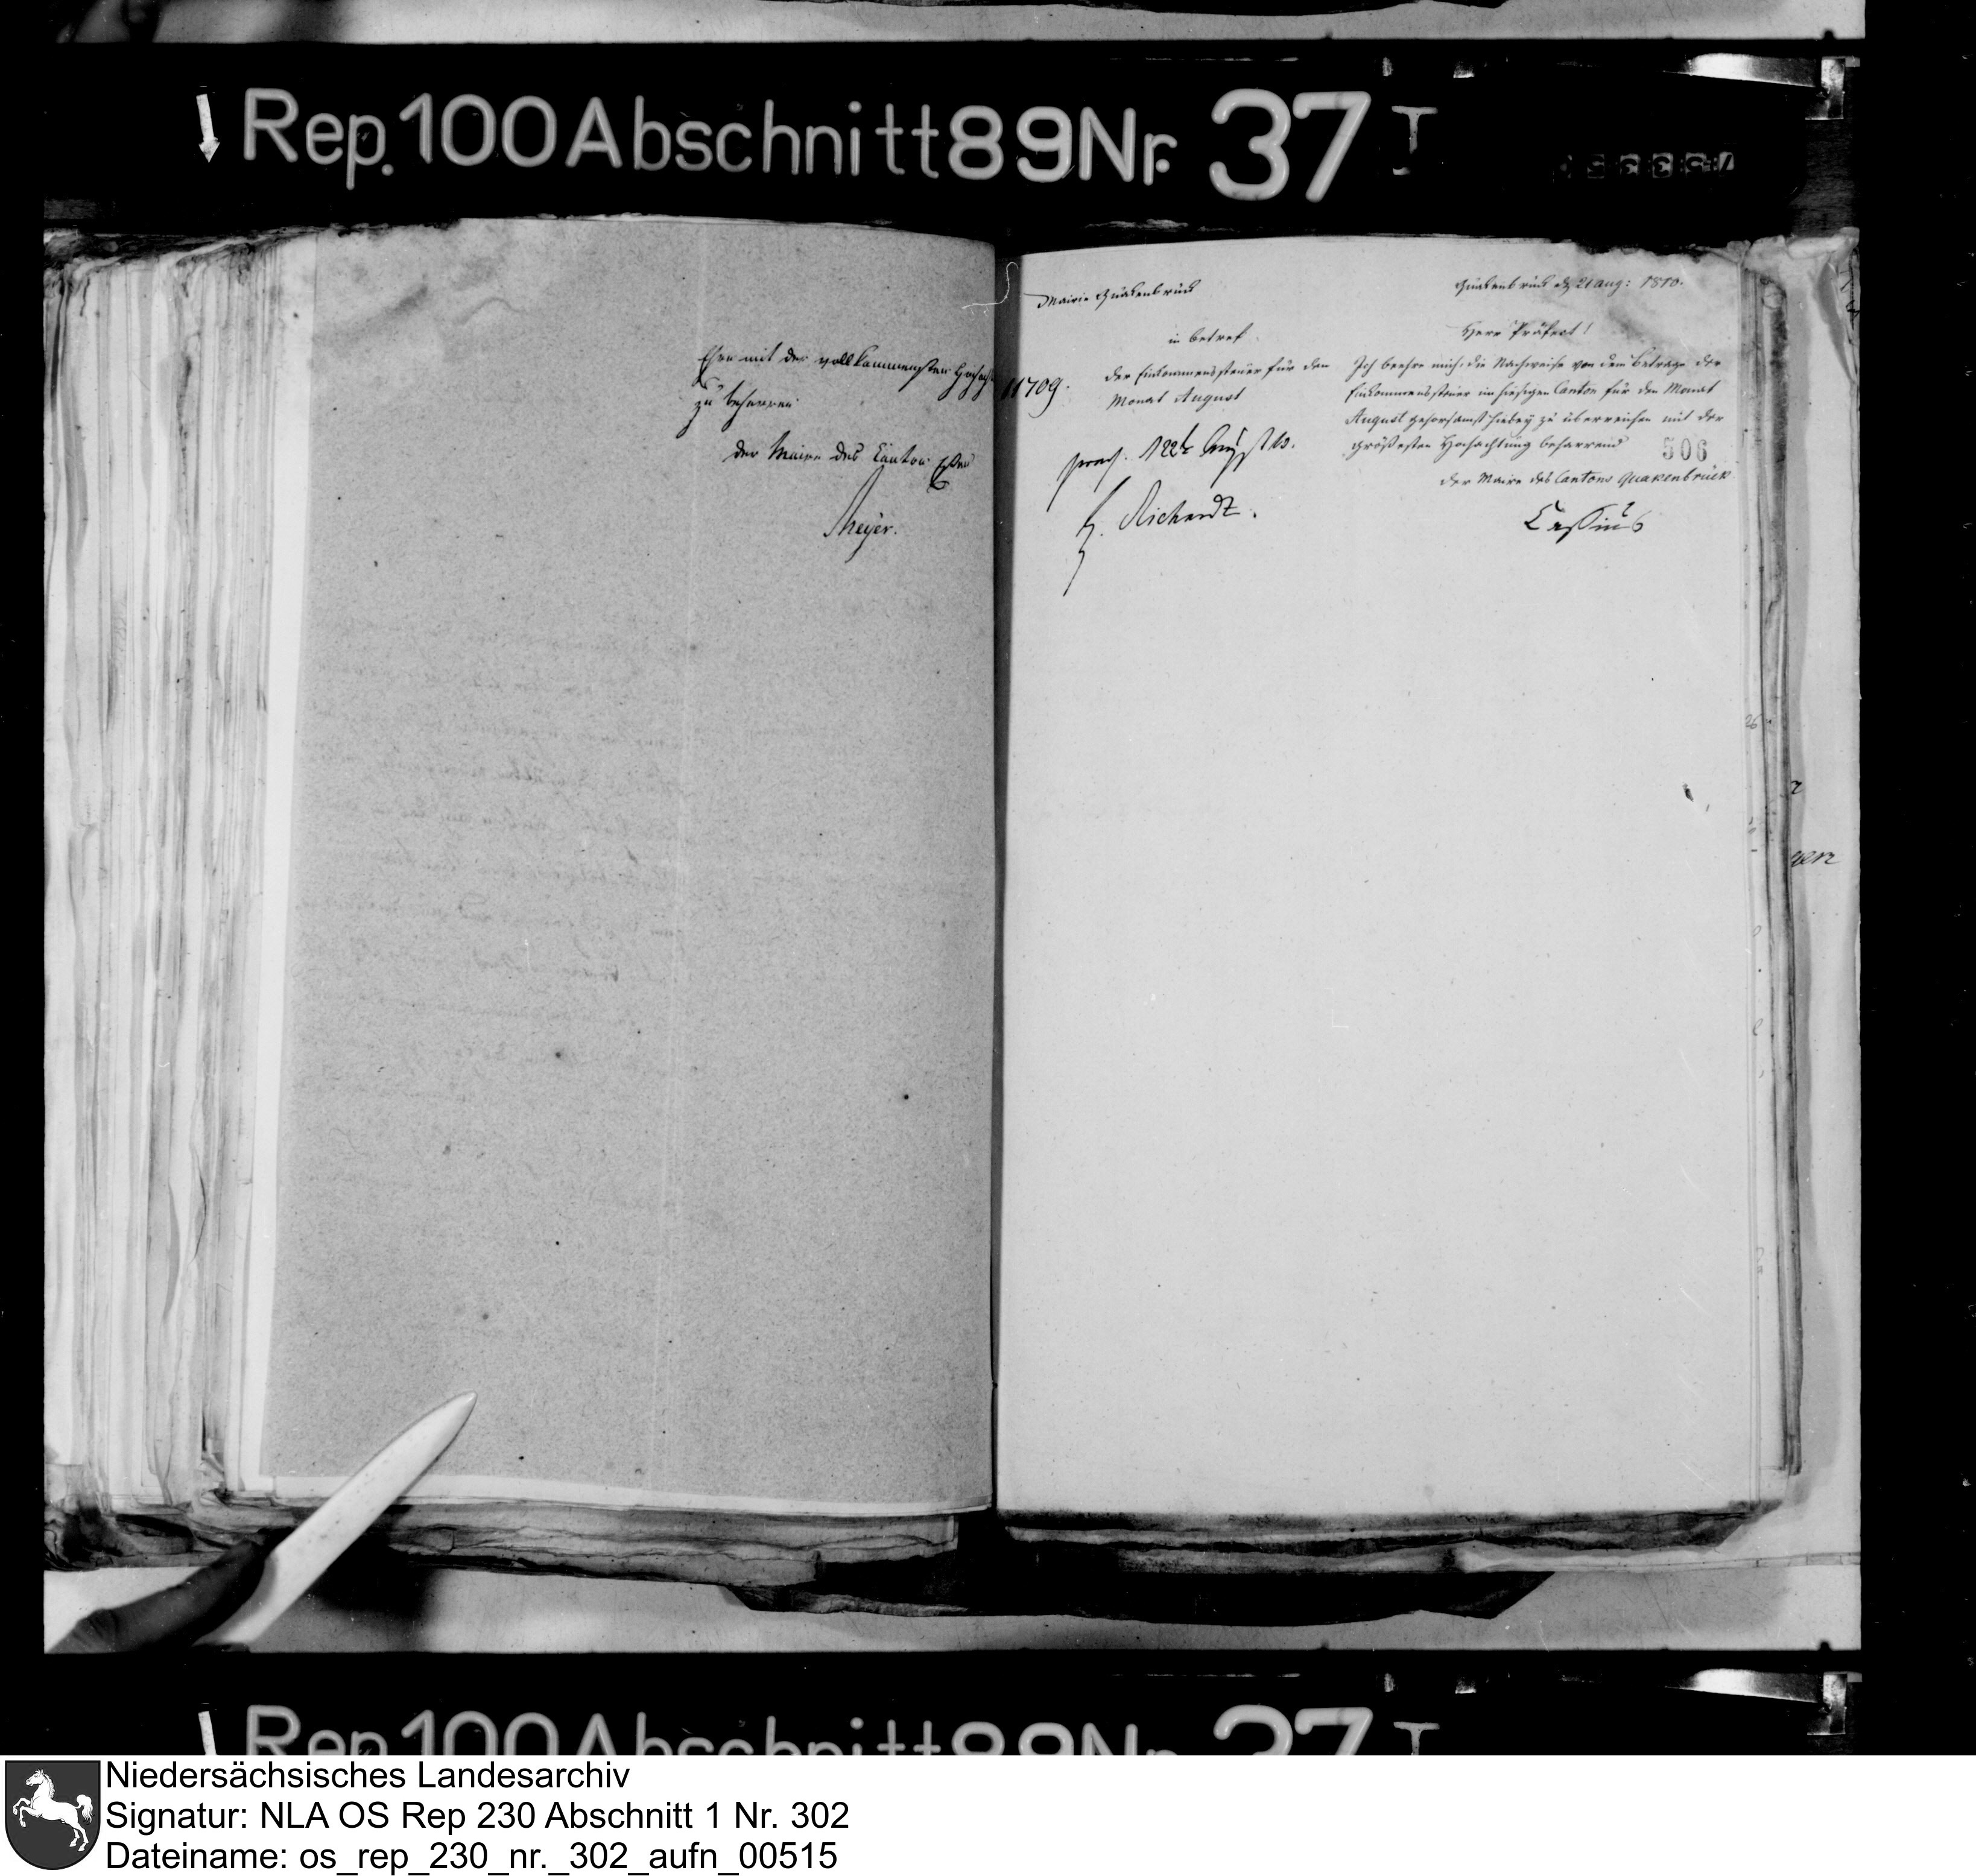 Rep. 100 Abschnitt 89 Nr. 37 I
Ehre mit der vollkommensten Hochach
zu beharren
der Maire des Canton Essen
Meyer.
Mairie Quakenbrück
Quakenbrück d 21 Aug: 1810.
in betref
der Einkommenssteuer für den
Monat August
11709.
praes. 22t August 10.
Richardt.
Herr Präfect!
Ich beehre mich, die Nachweise von dem Betrage der
Einkommenssteuer im hiesigen Canton für den Monat
August gehorsamst hiebey zu überreichen mit der
größesten Hochachtung beharrend
506
Der Maire des Cantons Quakenbrück
Cassius
Rep. 100 Abschnitt 89 Nr. 37 I
Niedersächsisches Landesarchiv
Signatur: NLA OS Rep 230 Abschnitt 1 Nr. 302
Dateiname: os_rep_230_nr._302_aufn_00515